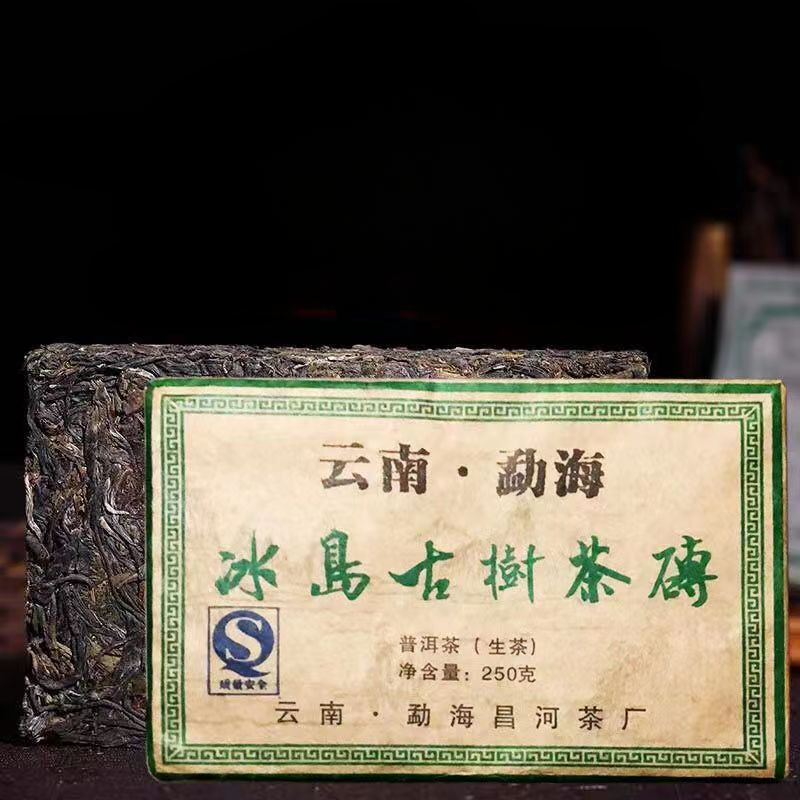 云南·勐海
冰島古樹茶磚
普洱茶(生茶)
净含量:250克
质量安全
云南·勐海昌河茶厂